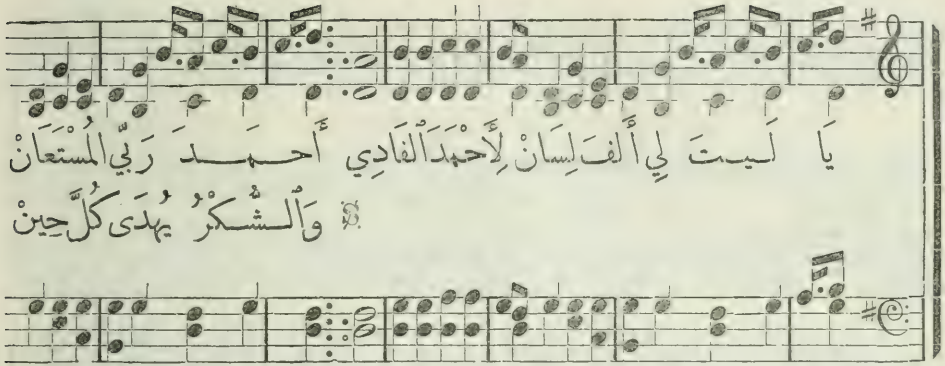 يَا لَيتَ لِي أَلفَ لِسَانْ لِأَحْمَدَ ٱلْفَادِي أَحمَدَ رَبِّي المُسْتَعَانْ
وَٱلشُّكْرُ يُهْدَى كُلَّ حِينْ